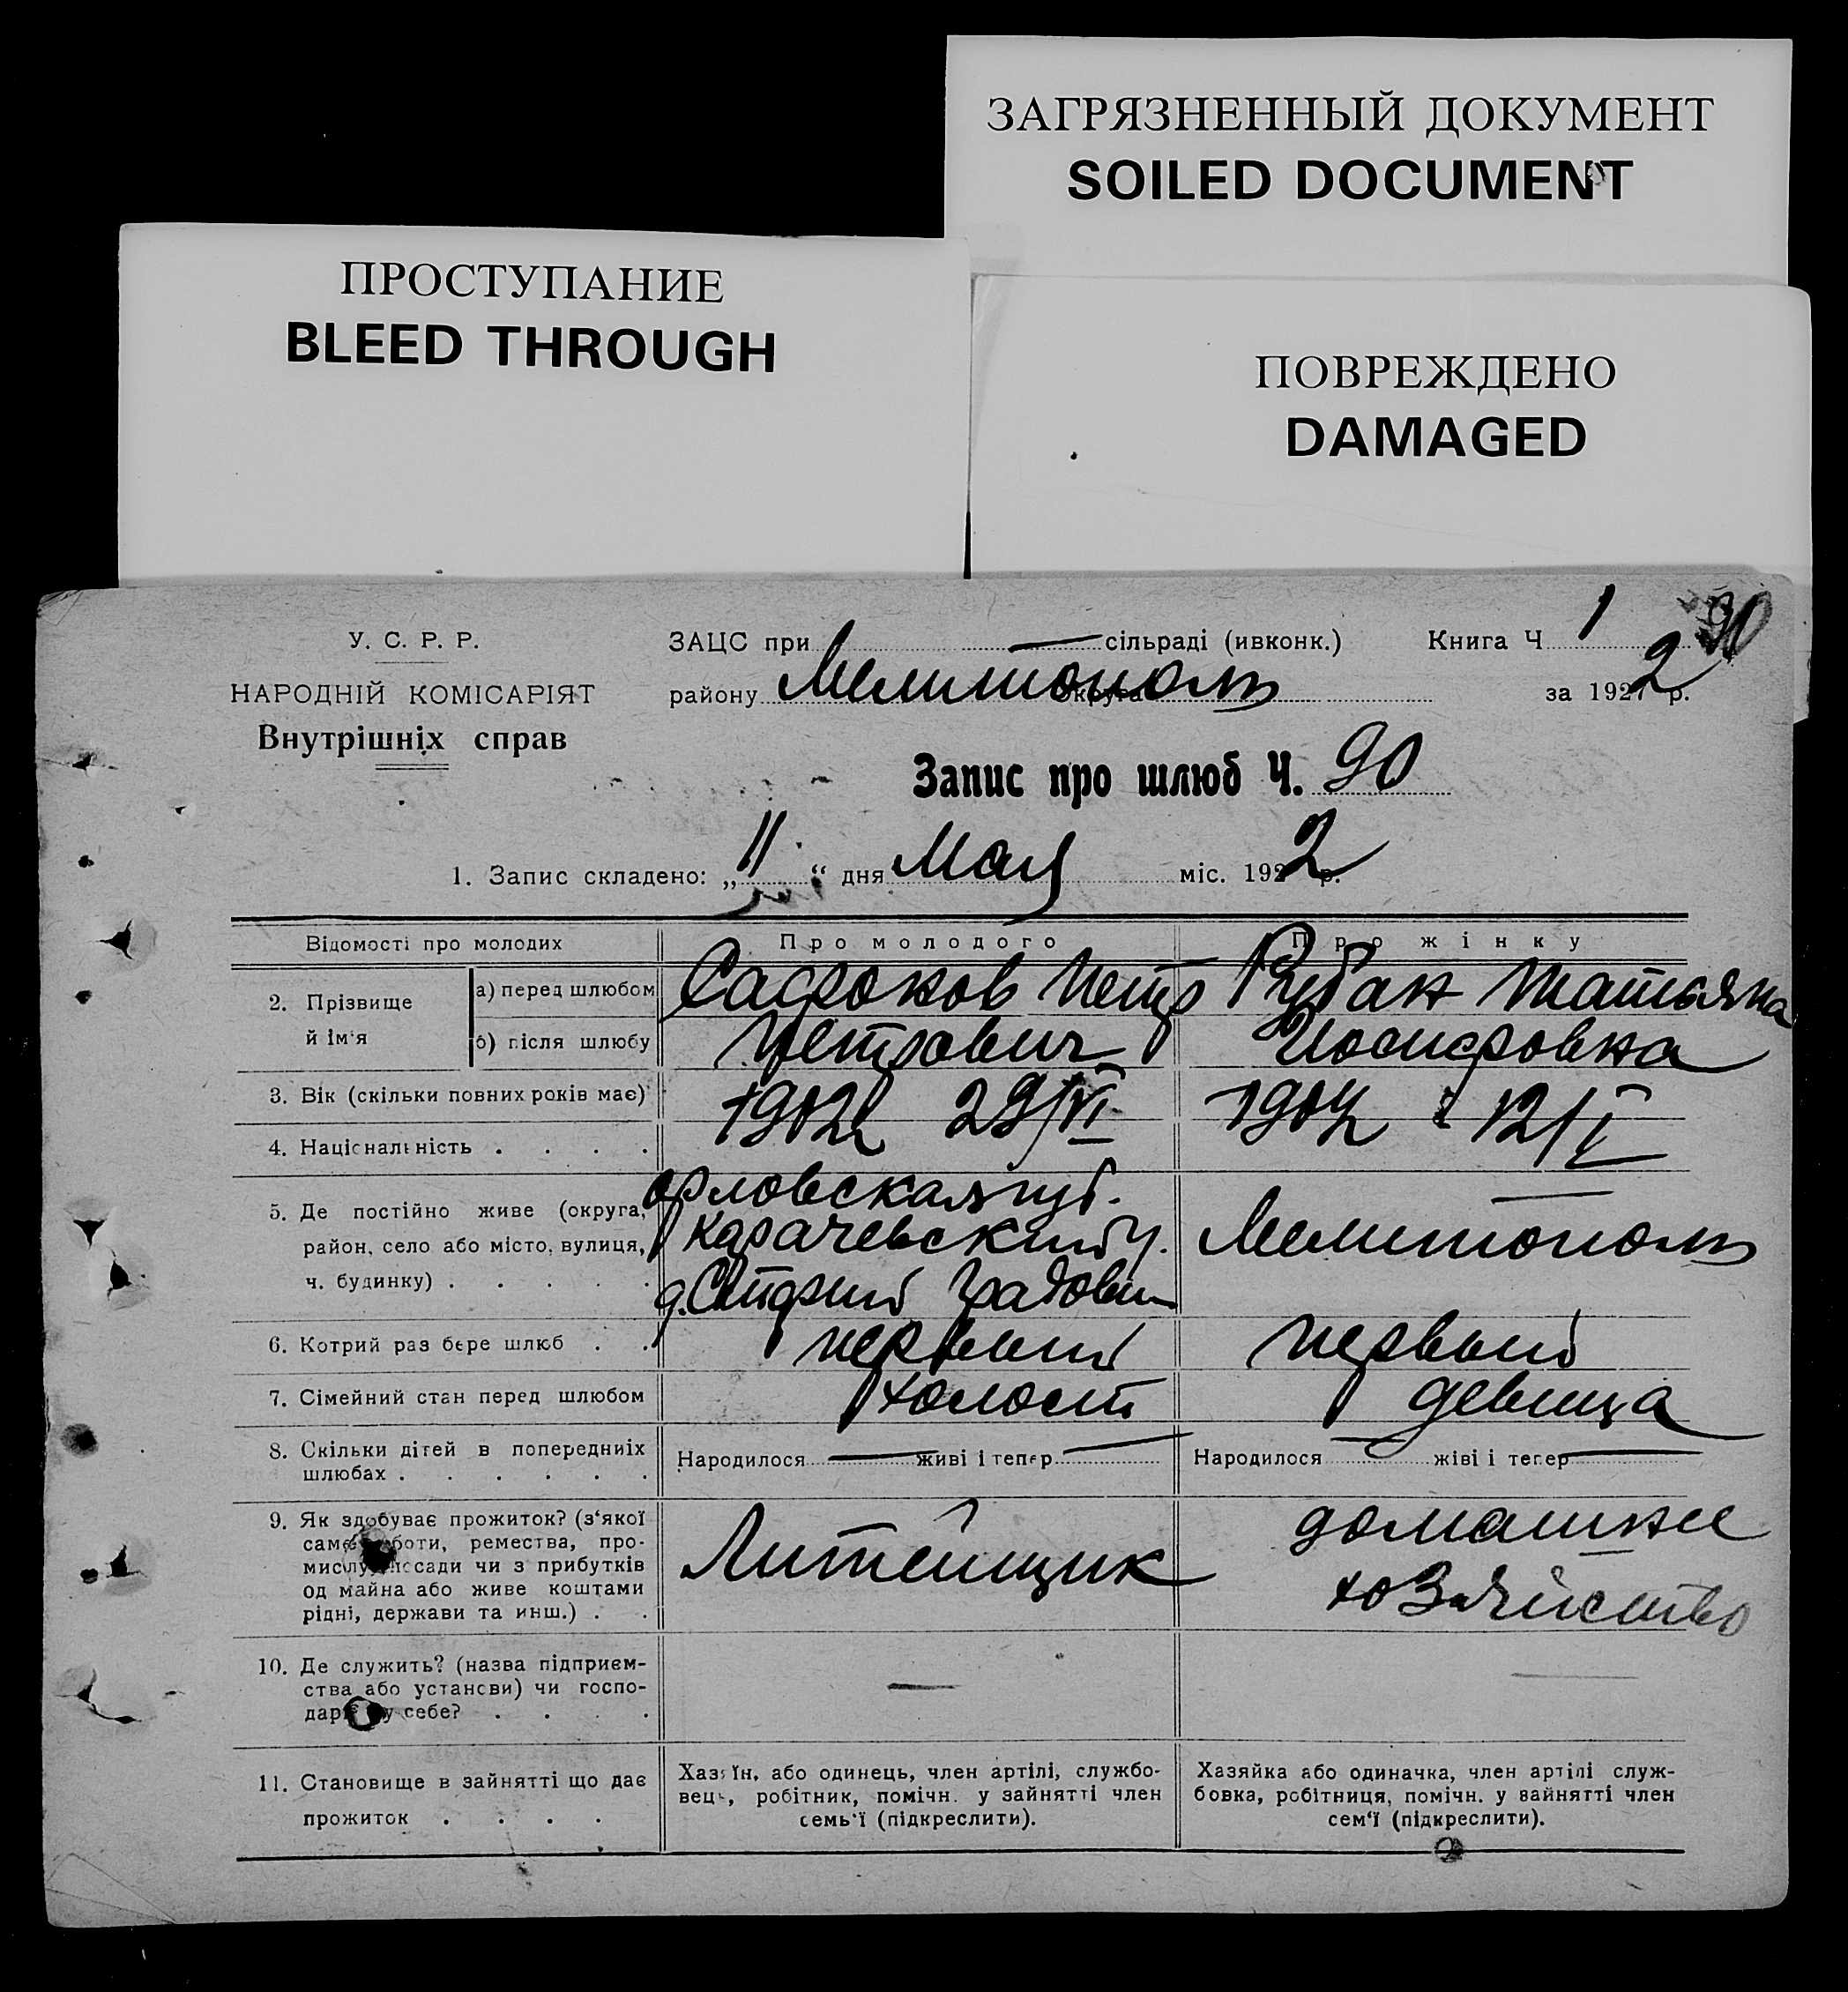 ЗАГРЯЗНЕННЫЙ ДОКУМЕНТ
SOILED DOCUMENT
ПРОСТУПАНИЕ
BLEED THROUGH
ПОВРЕЖДЕНО
DAMAGED
У. С. Р. Р.
НАРОДНІЙ КОМІСАРІЯТ
Внутрішніх справ
ЗАЦС при — сільраді (ивконк.) Книга Ч 1 90
району Мелитополь Округа за 1922 р.
Запис про шлюб Ч. 90
1. Запис складено: „11“ дня Мая міс. 1922 р.
Відомості про молодих Про молодого Про жінку
2. Прізвище й ім'я
а) перед шлюбом Сафонов Петр Рубан Татьяна
б) після шлюбу Петрович Иосифовна
3. Вік (скільки повних років має) 1902 29/VI 1904 12/I
4. Національність . . . .
5. Де постійно живе (округа, орловская губ. —
район, село або місто, вулиця, Карачевский у. Мелитополь
ч. будинку) . . . . . д.
6. Котрий раз бере шлюб . . первый первый
7. Сімейний стан перед шлюбом холост девица
8. Скільки дітей в попередниіх
шлюбах . . . . . .
Народилося — живі і тепер — Народилося — жіві і тепер —
9. Як здобуває прожиток? (з'якої
само роботи, ремества, про-
мислу, посади чи з прибутків
од майна або живе коштами
рідні, держави та инш.) . .
Литейщик
домашнее
хозяйство
10. Де служить? (назва підприєм-
ства або установи) чи госпо-
дарює у себе? . . . .
— —
11. Становище в зайнятті що дає
прожиток . . . .
Хазяїн, або одинець, член артілі, службо-
вець, робітник, помічн. у зайнятті член
семь'ї (підкреслити).
Хазяйка або одиначка, член артілі служ-
бовка, робітниця, помічн. у зайнятті член
сем'ї (підкреслити).